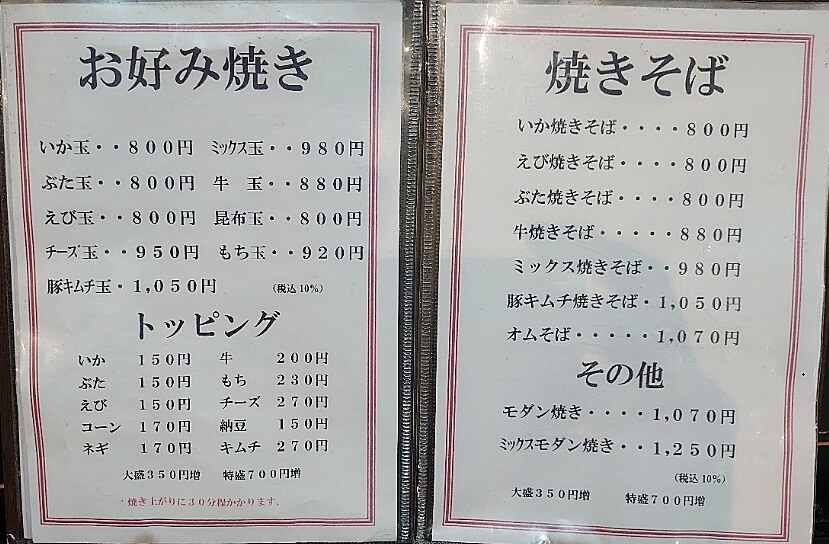 お好み焼き
いか玉・・８００円 ミックス玉・・９８０円
ぶた玉・・８００円 牛　玉・・８８０円
えび玉・・８００円 昆布玉・・８００円
チーズ玉・・９５０円 もち玉・・９２０円
豚キムチ玉・１,０５０円 （税込10％）
トッピング
いか １５０円 牛 ２００円
ぶた １５０円 もち ２３０円
えび １５０円 チーズ ２７０円
コーン １７０円 納豆 １５０円
ネギ １７０円 キムチ ２７０円
大盛３５０円増 特盛７００円増
焼き上がりに３０分程かかります。
焼きそば
いか焼きそば・・・・８００円
えび焼きそば・・・・８００円
ぶた焼きそば・・・・８００円
牛焼きそば・・・・・８８０円
ミックス焼きそば・・９８０円
豚キムチ焼きそば・１,０５０円
オムそば・・・・・１,０７０円
その他
モダン焼き・・・・１,０７０円
ミックスモダン焼き・・１,２５０円
（税込10％）
大盛３５０円増 特盛７００円増